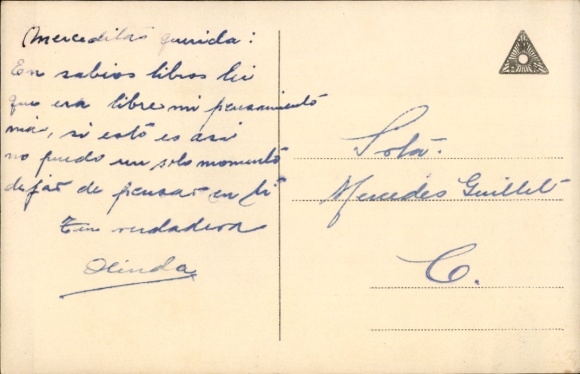 Merceditas querida:
En sabios libros leí
que era libre mi pensamiento
mas, si esto es asi
no puedo un solo momento
dejar de pensar en tí
Tu verdadera
Olinda
Srta.
Mercedes Guillet
C.